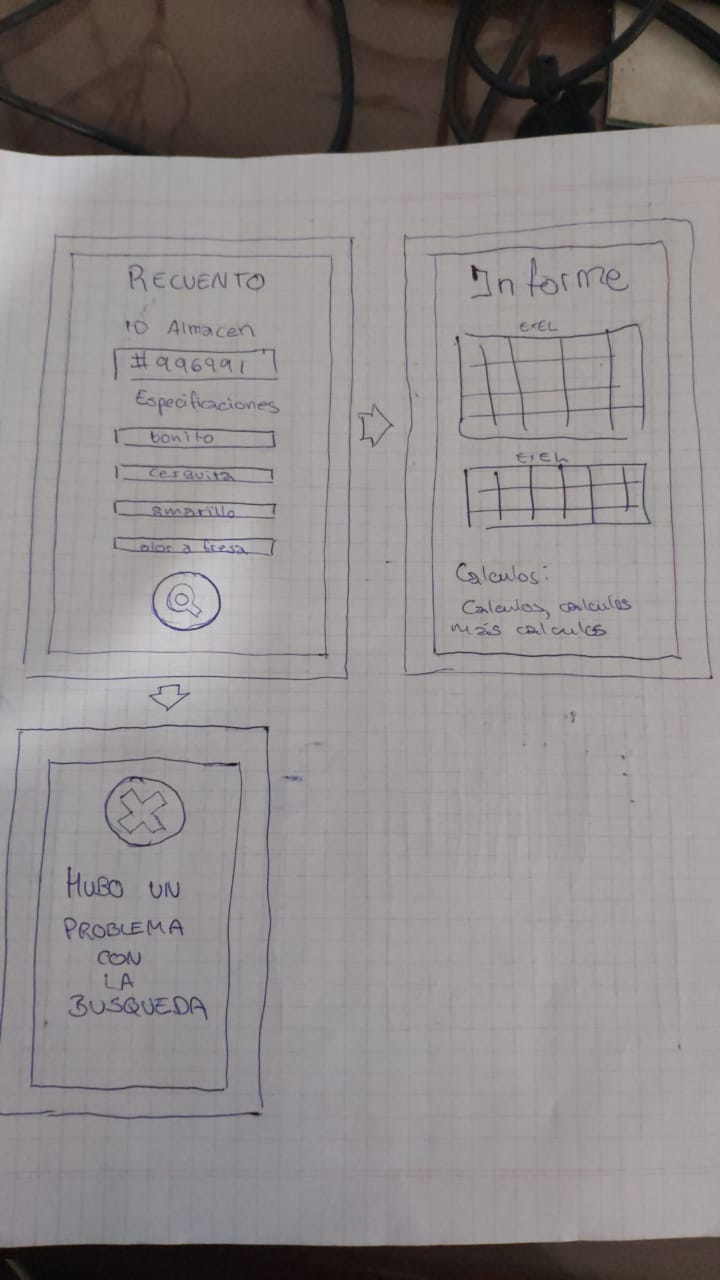 RECUENTO
ID Almacen
#996991
Especificaciones
bonito
cerquita
amarillo
olor a fresa
Informe
EXEL
EXEL
Calculos:
Calculos, calculos
más calculos
HUBO UN
PROBLEMA
CON
LA
BUSQUEDA